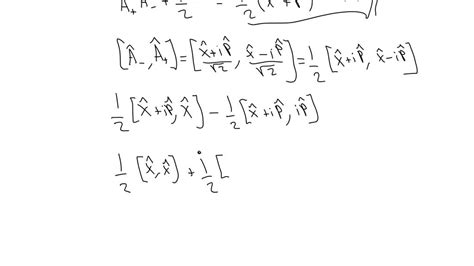 Â₊Â₋ + 1/2 = 1/2 (x̂ + p̂
[Â₋, Â₊] = [(x̂+ip̂)/√2, (x̂-ip̂)/√2] = 1/2 [x̂+ip̂, x̂-ip̂]
1/2 [x̂+ip̂, x̂] - 1/2 [x̂+ip̂, ip̂]
1/2 [x̂, x̂] + i/2 [